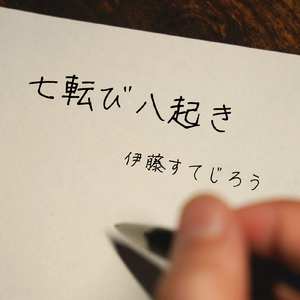 七転び八起き
伊藤すてじろう